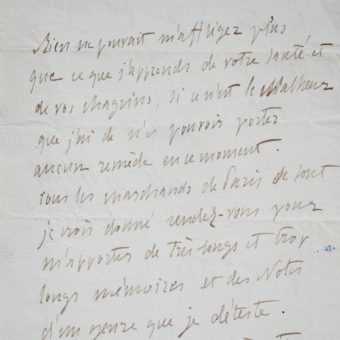 Rien ne pouvait m'affliger plus
que ce que j'apprends de votre santé et
de vos chagrins, si ce n'est le Malheur
que j'ai de n'y pouvoir porter
aucun remède en ce moment.
tous les marchands de Paris se sont
je crois donné rendez-vous pour
m'apporter de très longs et trop
longs mémoires et des Notes
d'un genre que je déteste.